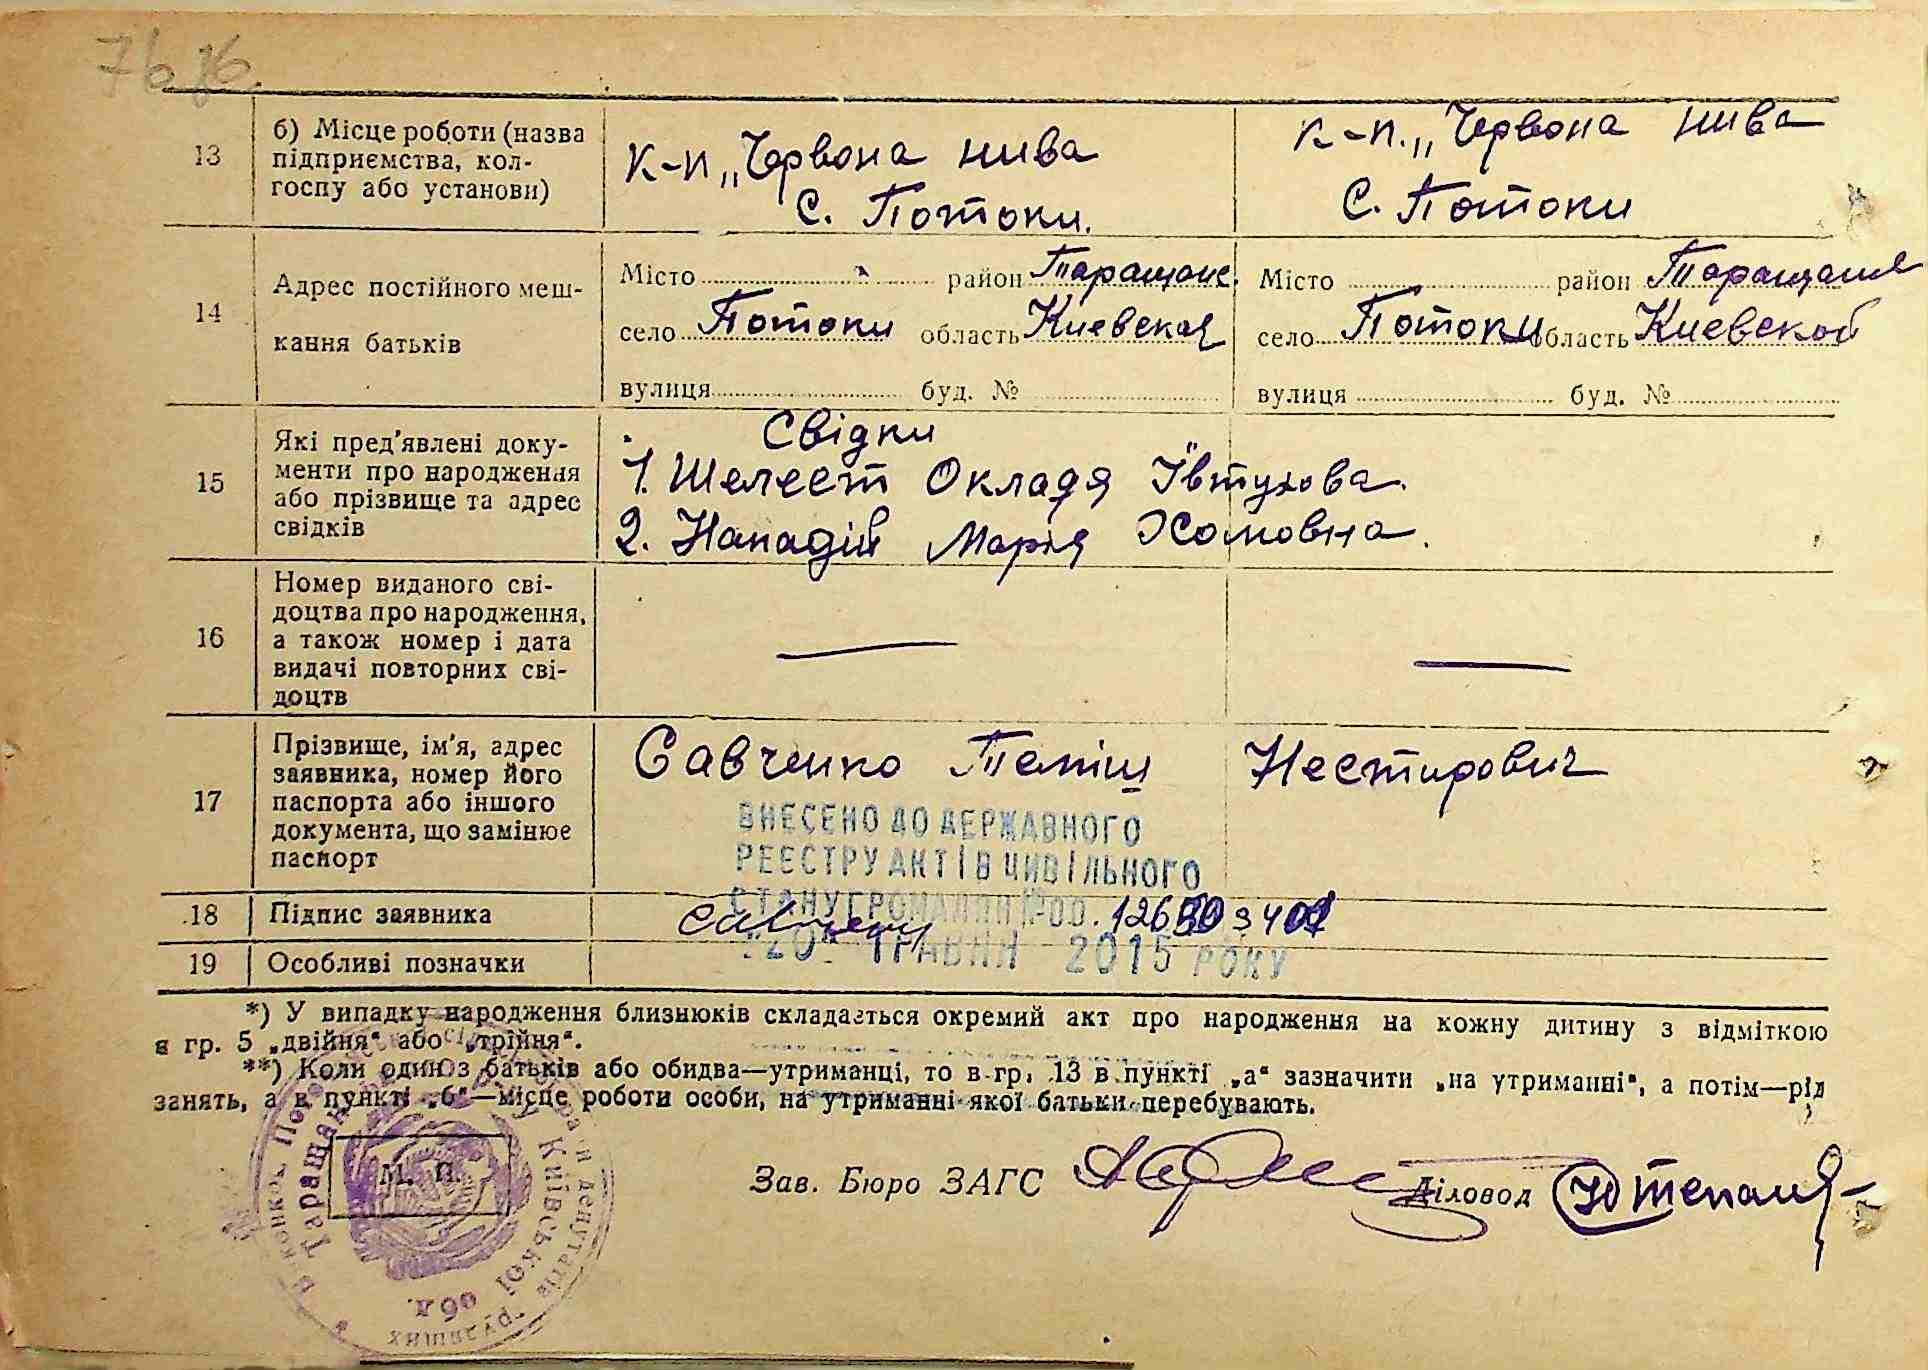 76
13 б) Місце роботи (назва
підприємства, кол-
госпу або установи)
к-п „Червона нива
с. Потоки.
к-п. „Червона нива
С. Потоки
14 Адрес постійного меш-
кання батьків
Місто район Таращанс.
село Потоки область Киевская
вулиця буд. №
Місто район
село Потоки область Киевской
вулиця буд. №
15 Які пред'явлені доку-
менти про народження
або прізвище та адрес
свідків
Свідки
1. Шелест Окладя Ївтухова.
2. Нападій Марія Хомовна.
16 Номер виданого сві-
доцтва про народження,
а також номер і дата
видачі повторних сві-
доцтв
—
—
17 Прізвище, ім'я, адрес
заявника, номер його
паспорта або іншого
документа, що замінює
паспорт
Савченко Нестирович
ВНЕСЕНО ДО ДЕРЖАВНОГО
РЕЄСТРУ АКТІВ ЦИВІЛЬНОГО
СТАНУ ГРОМАДЯН № 00.
"20" ТРАВНЯ 2015 РОКУ
18 Підпис заявника
19 Особливі позначки
*) У випадку народження близнюків складається окремий акт про народження на кожну дитину з відміткою
в гр. 5 „двійня“ або „трійня“.
**) Коли один з батьків або обидва—утриманці, то в гр. 13 в пункті „а“ зазначити „на утриманні“, а потім—рід
занять, а в пункті „б“—місце роботи особи, на утриманні якої батьки перебувають.
М. П.
Зав. Бюро ЗАГС
Діловод
Київської обл.
депутатів трудящих